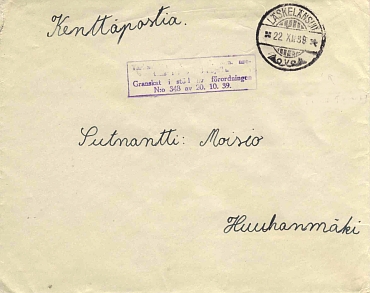 Kenttäpostia.
LÄSKELÄNSUU
22 XII 39
Granskat i stöd av förordningen
N:o 343 av 20. 10. 39.
Lutnantti: Moisio
Huuhanmäki